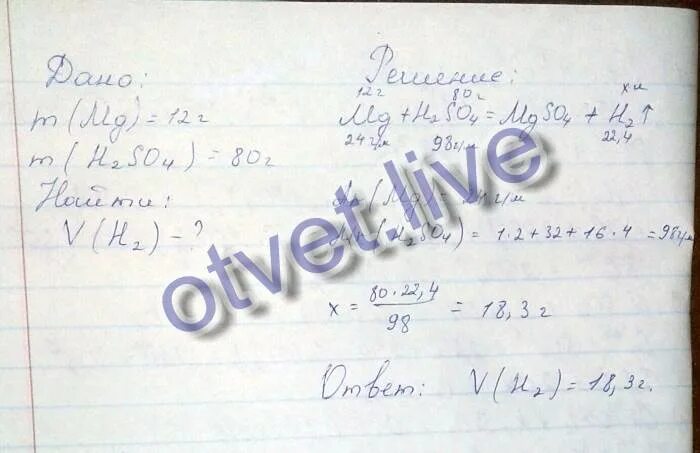 Дано:
m (Mg) = 12г
m (H2SO4) = 80г
Найти:
V (H2) - ?
Решение:
12г 80г x л
Mg + H2SO4 = MgSO4 + H2↑
24г/м 98г/м 22,4
(Mg) = 24г/м
(H2SO4) = 1·2+32+16·4 = 98г/м
x = 80·22,4 / 98 = 18,3г
Ответ: V (H2) = 18,3г.
otvet.live